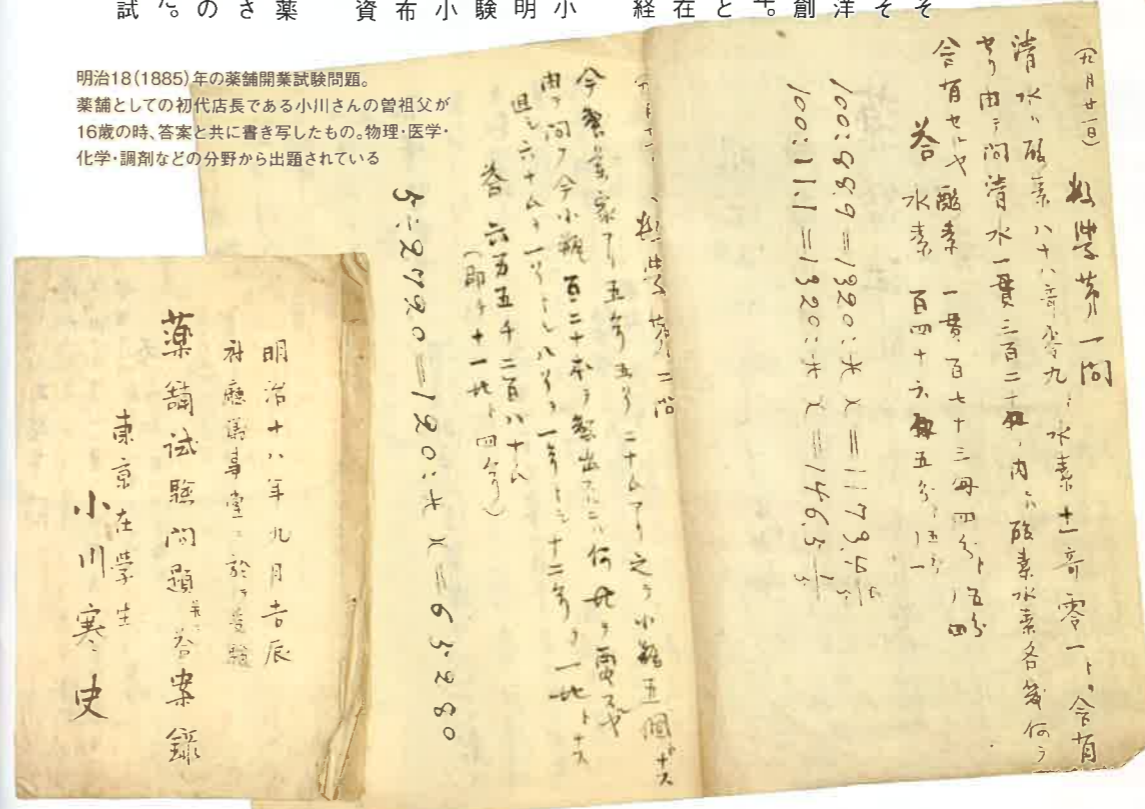 そ
そ
洋
創
と
在
経
小
明
験
小
布
資
薬
さ
の
た。
試
明治18(1885)年の薬舗開業試験問題。
薬舗としての初代店長である小川さんの曽祖父が
16歳の時、答案と共に書き写したもの。物理・医学・
化学・調剤などの分野から出題されている
(九月廿一日) 数学第一問
清水ハ酸素八十八奇零九ト水素十一奇零一トヲ含有
セリ由テ問清水一貫三百二十匁ノ内ニハ酸素水素各幾何ヲ
含有セルヤ 酸素 一貫百七十三匁四分ト五分ノ四
答 水素 百四十六匁五分ト五分ノ一
100:88.9=1320:x x=1173.4 4/5
100:11.1=1320:x x=146.5 1/5
数学第二問
今製薬家アリ五 五分二十ムアリ之ヲ小瓶五個トナス
由テ問フ今小瓶百二十本ヲ製出スルニハ何 ヲ要スルヤ
但シ六十ムヲ一 トシ八 ヲ一 トシ十二 ヲ一 トナス
答 六万五千二百八十ム
(即チ十一 ト四 )
5:2720=120:x x=65280
明治十八年九月吉辰
府廳議事堂ニ於テ受験
薬舗試験問題並ニ答案録
東京在学生
小川寒史